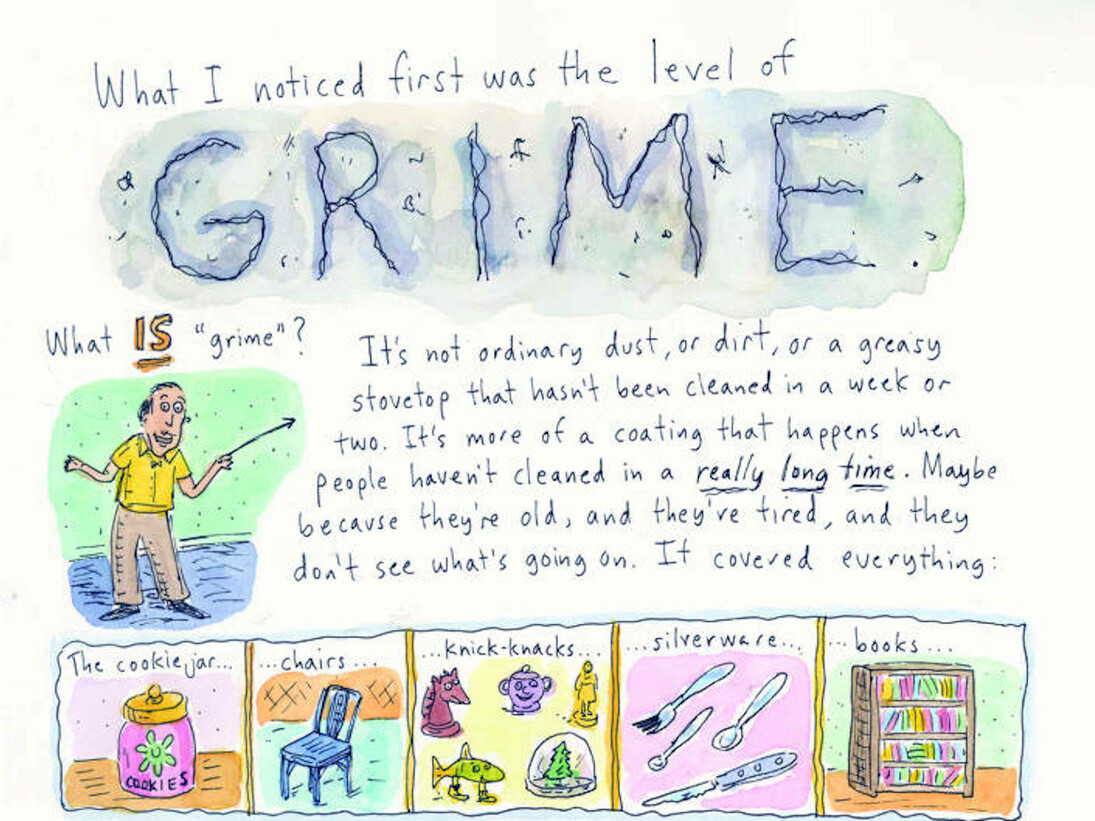 What I noticed first was the level of
GRIME
What IS "grime"?
It's not ordinary dust, or dirt, or a greasy
stovetop that hasn't been cleaned in a week or
two. It's more of a coating that happens when
people haven't cleaned in a really long time. Maybe
because they're old, and they're tired, and they
don't see what's going on. It covered everything:
The cookie jar...
...chairs...
...knick-knacks...
...silverware...
...books...
COOKIES